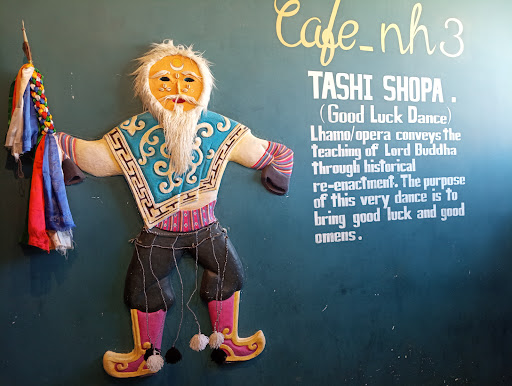 Cafe_nh3
TASHI SHOPA.
(Good Luck Dance)
Lhamo/opera conveys the
teaching of Lord Buddha
through historical
re-enactment. The purpose
of this very dance is to
bring good luck and good
omens.